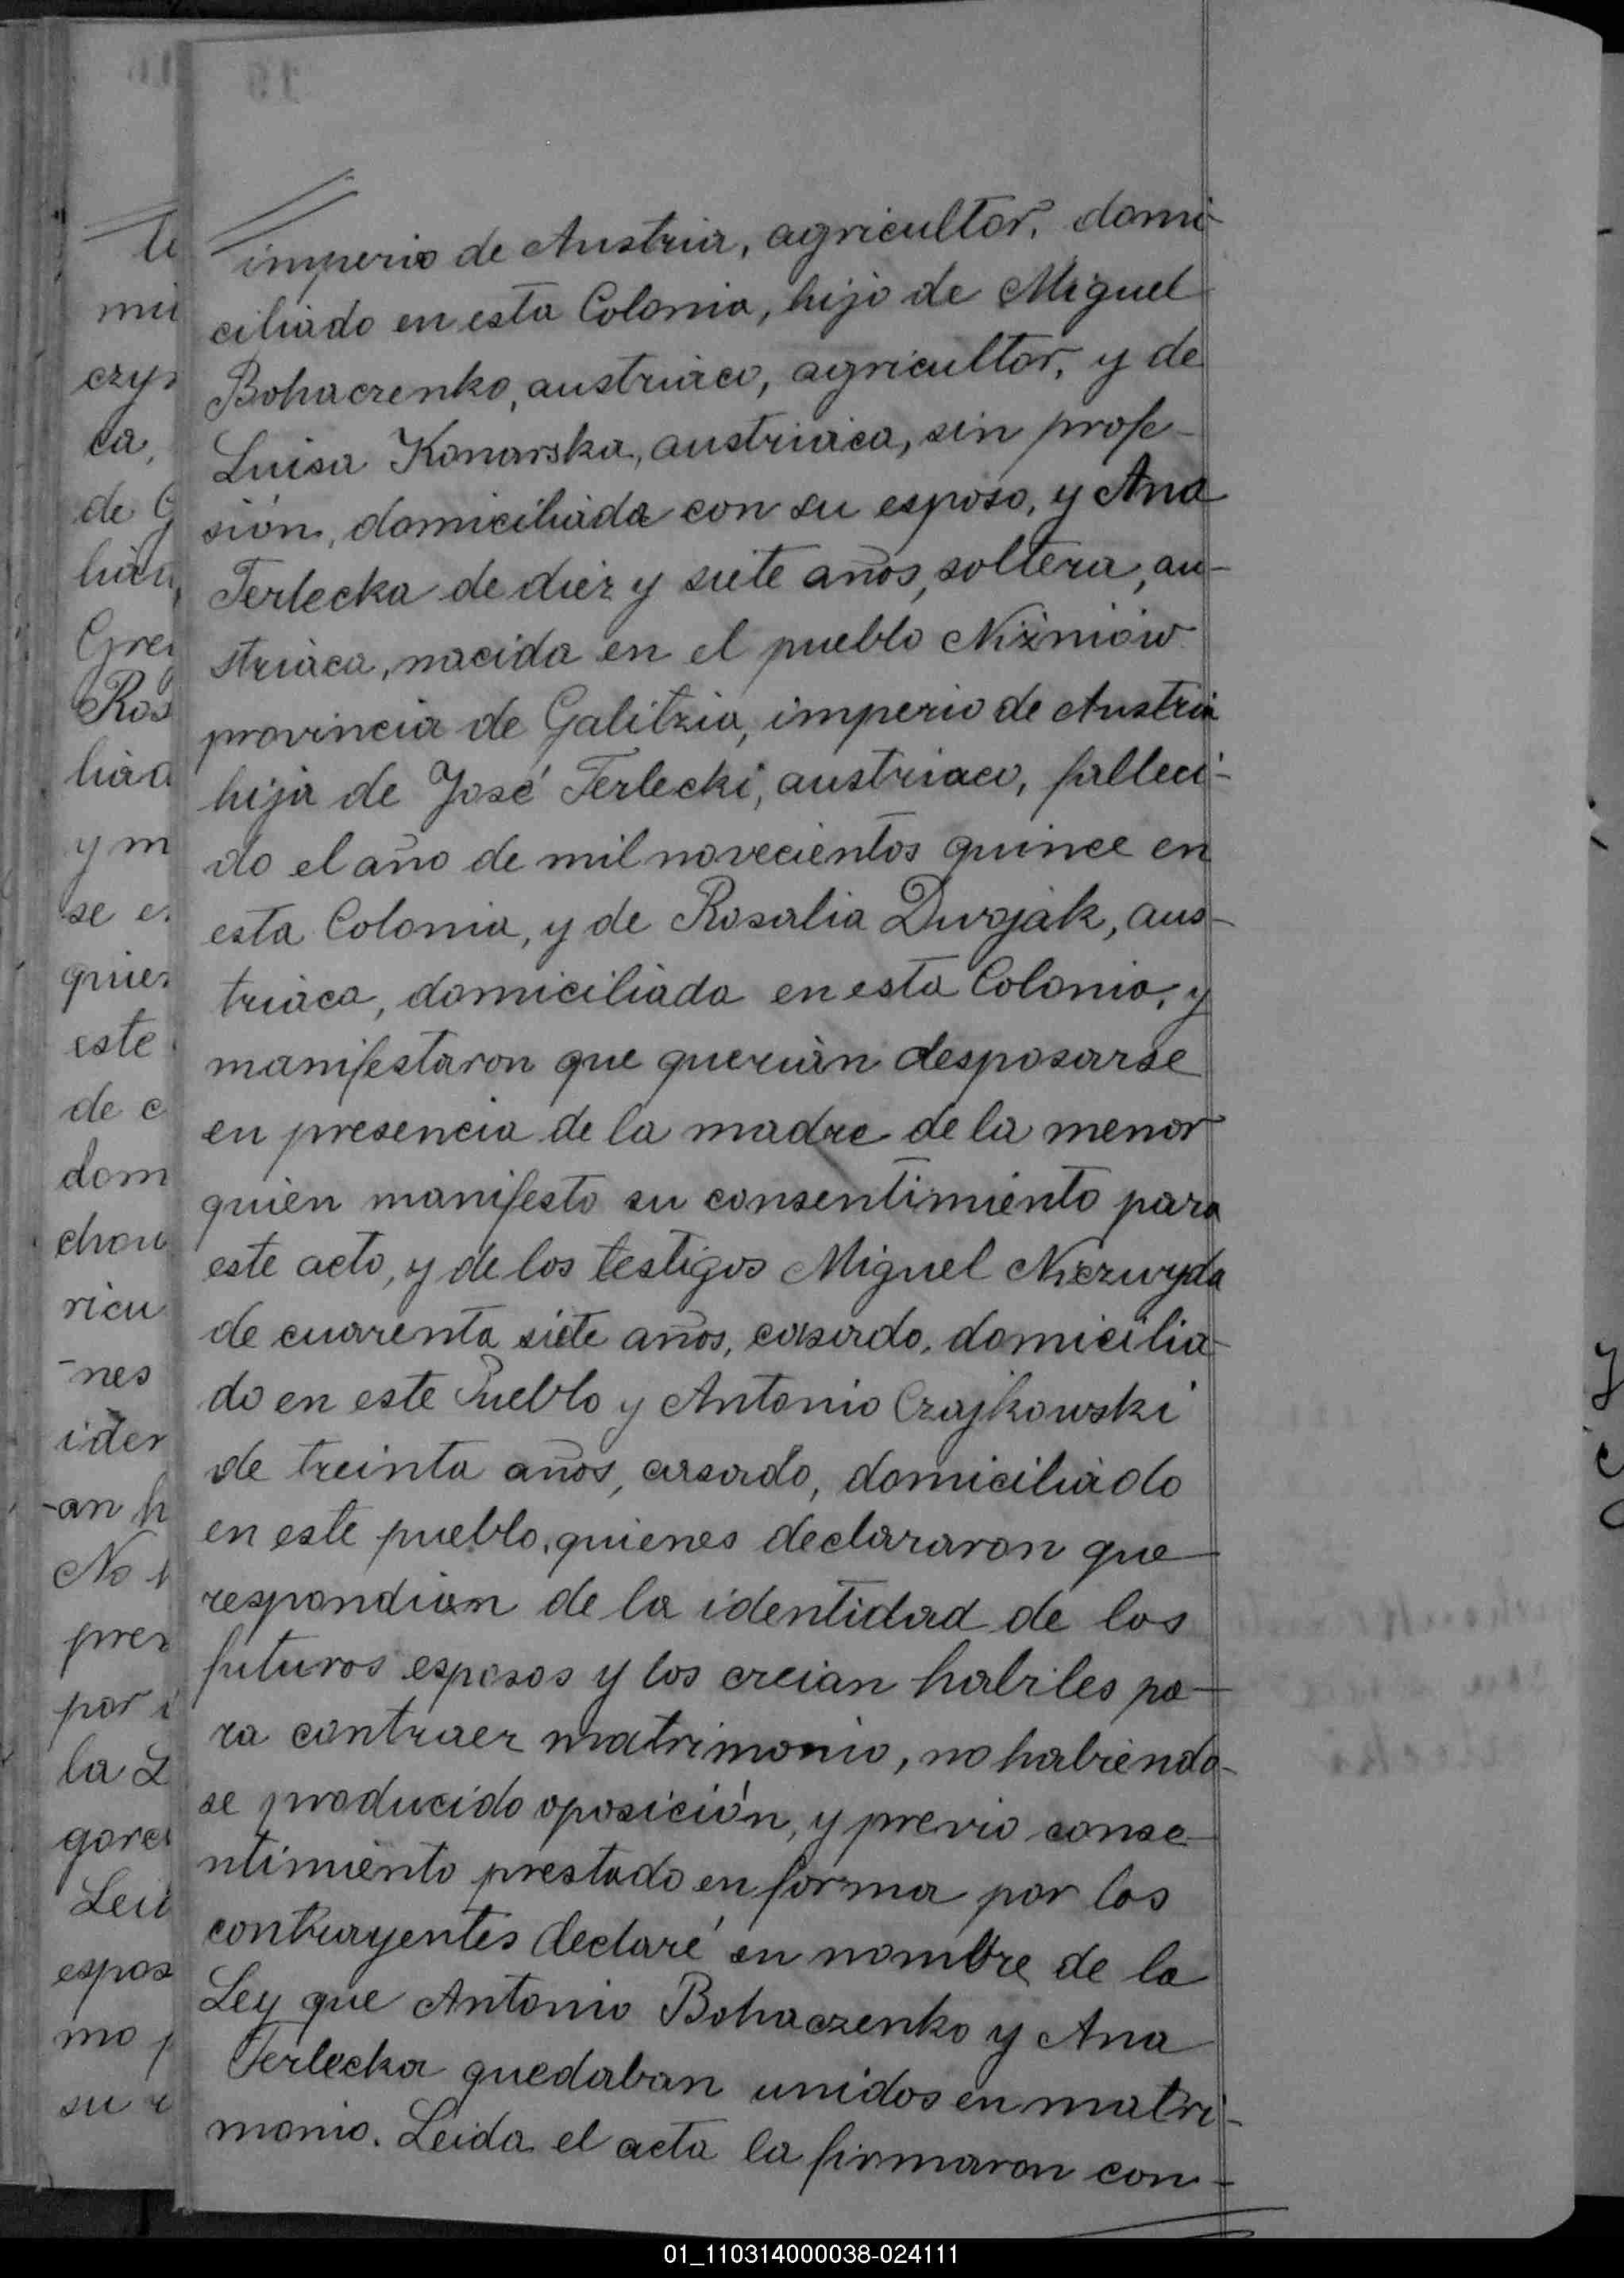 te
mii
czy
ca,
de G
lian
Gre
Ros
liad
y m
se e
quier
este
de c
dom
chou
ricu
-nes
ider
-an h
No h
pres
por i
la L
gorei
Leid
espos
mo p
su r
imperio de Austria, agricultor, domi-
ciliado en esta Colonia, hijo de Miguel
Bohaczenko, austriaco, agricultor, y de
Luisa Konarska, austriaca, sin profe-
sión, domiciliada con su esposo, y Ana
Terlecka de diez y siete años, soltera, au-
striaca, nacida en el pueblo Niżniów
provincia de Galitzia, imperio de Austria
hija de José Terlecki, austriaco, falleci-
do el año de mil novecientos quince en
esta Colonia, y de Rosalia Dwojak, aus-
triaca, domiciliada en esta Colonia, y
manifestaron que querian desposarse
en presencia de la madre de la menor
quien manifesto su consentimiento para
este acto, y de los testigos Miguel Niezwyda
de cuarenta siete años, casado, domicilia-
do en este Pueblo y Antonio Czajkowski
de treinta años, casado, domiciliado
en este pueblo, quienes declararon que
respondian de la identidad de los
futuros esposos y los creian habiles pa-
ra contraer matrimonio, no habiendo-
se producido oposición, y previo conse-
ntimiento prestado en forma por los
contrayentes declaré en nombre de la
Ley que Antonio Bohaczenko y Ana
Terlecka quedaban unidos en matri-
monio. Leida el acta la firmaron con-
01_110314000038-024111